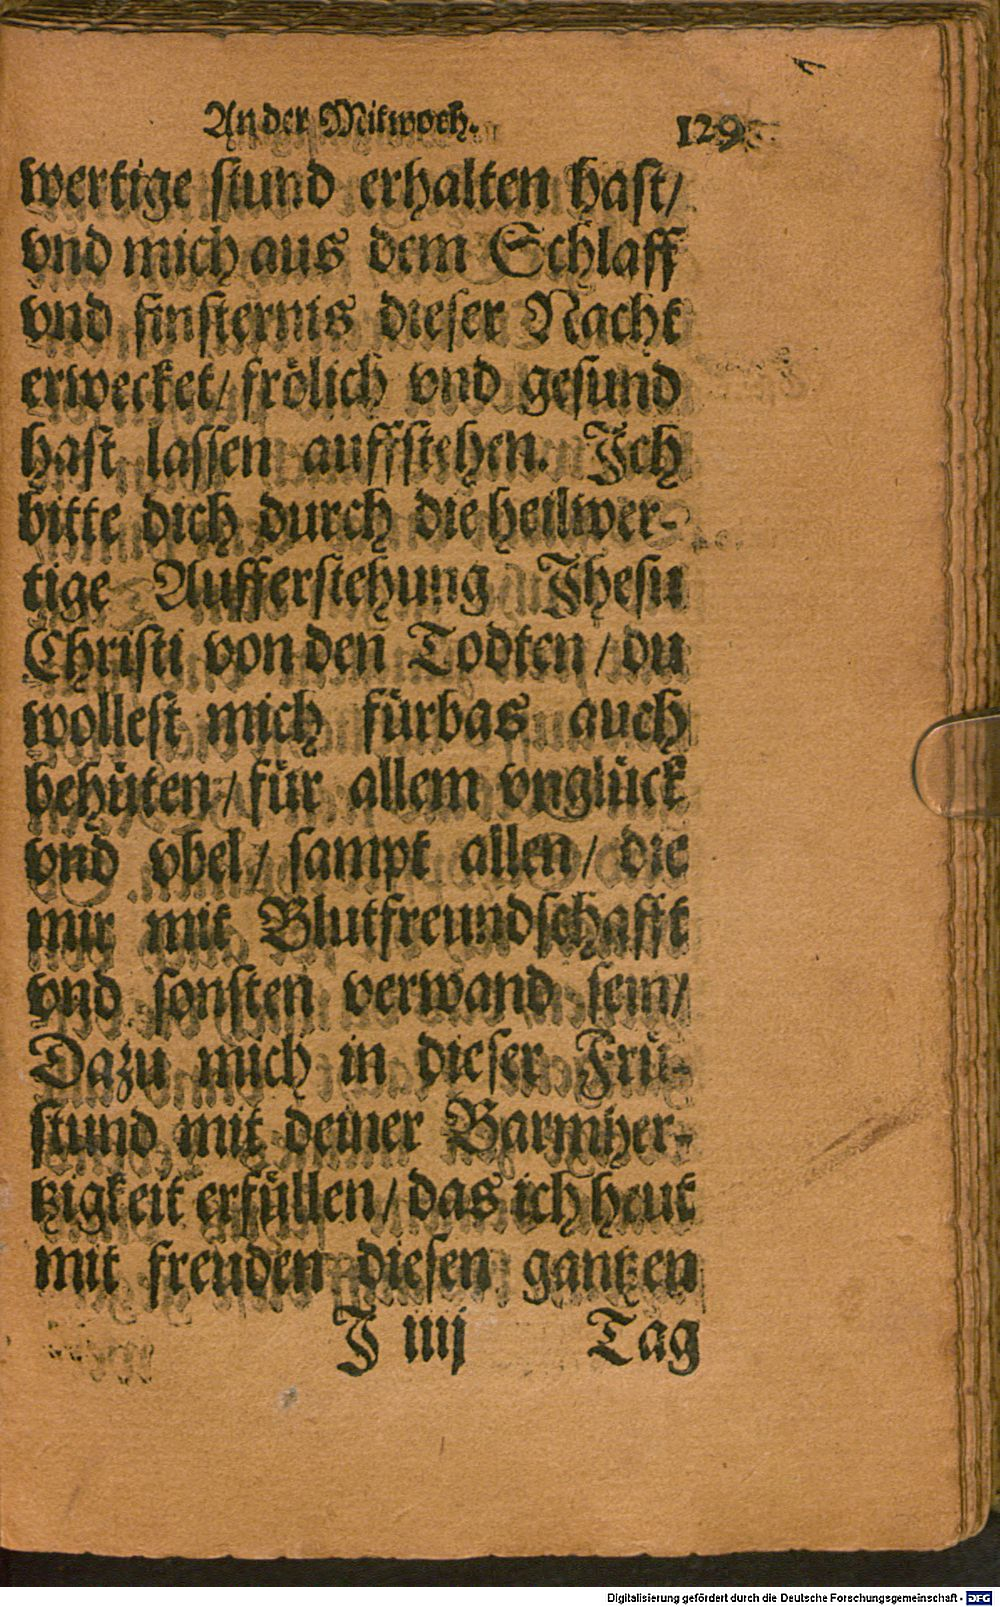 An der Mitwoch. 129
wertige stund erhalten hast/
vnd mich aus dem Schlaff
vnd finsternis dieser Nacht
erwecket/ frölich vnd gesund
hast lassen auffstehen. Jch
bitte dich durch die heilwer-
tige Aufferstehung Jhesu
Christi von den Todten / du
wollest mich fürbas auch
behüten / für allem vnglück
vnd vbel / sampt allen / die
mir mit Blutfreundschafft
vnd sonsten verwand sein/
Dazu mich in dieser Frü-
stund mit deiner Barmher-
tzigkeit erfüllen / das ich heut
mit freuden diesen gantzen
J iiij Tag
Digitalisierung gefördert durch die Deutsche Forschungsgemeinschaft - DFG